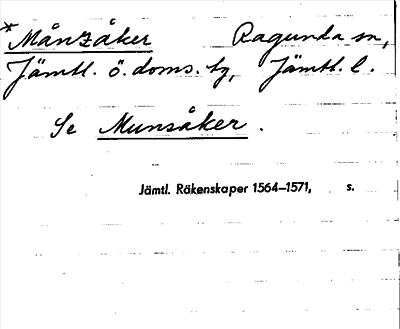 *Månzåker Ragunda sn,
Jämtl. ö. doms. tg, Jämtl. l.
Se Munsåker.
Jämtl. Räkenskaper 1564–1571, s.